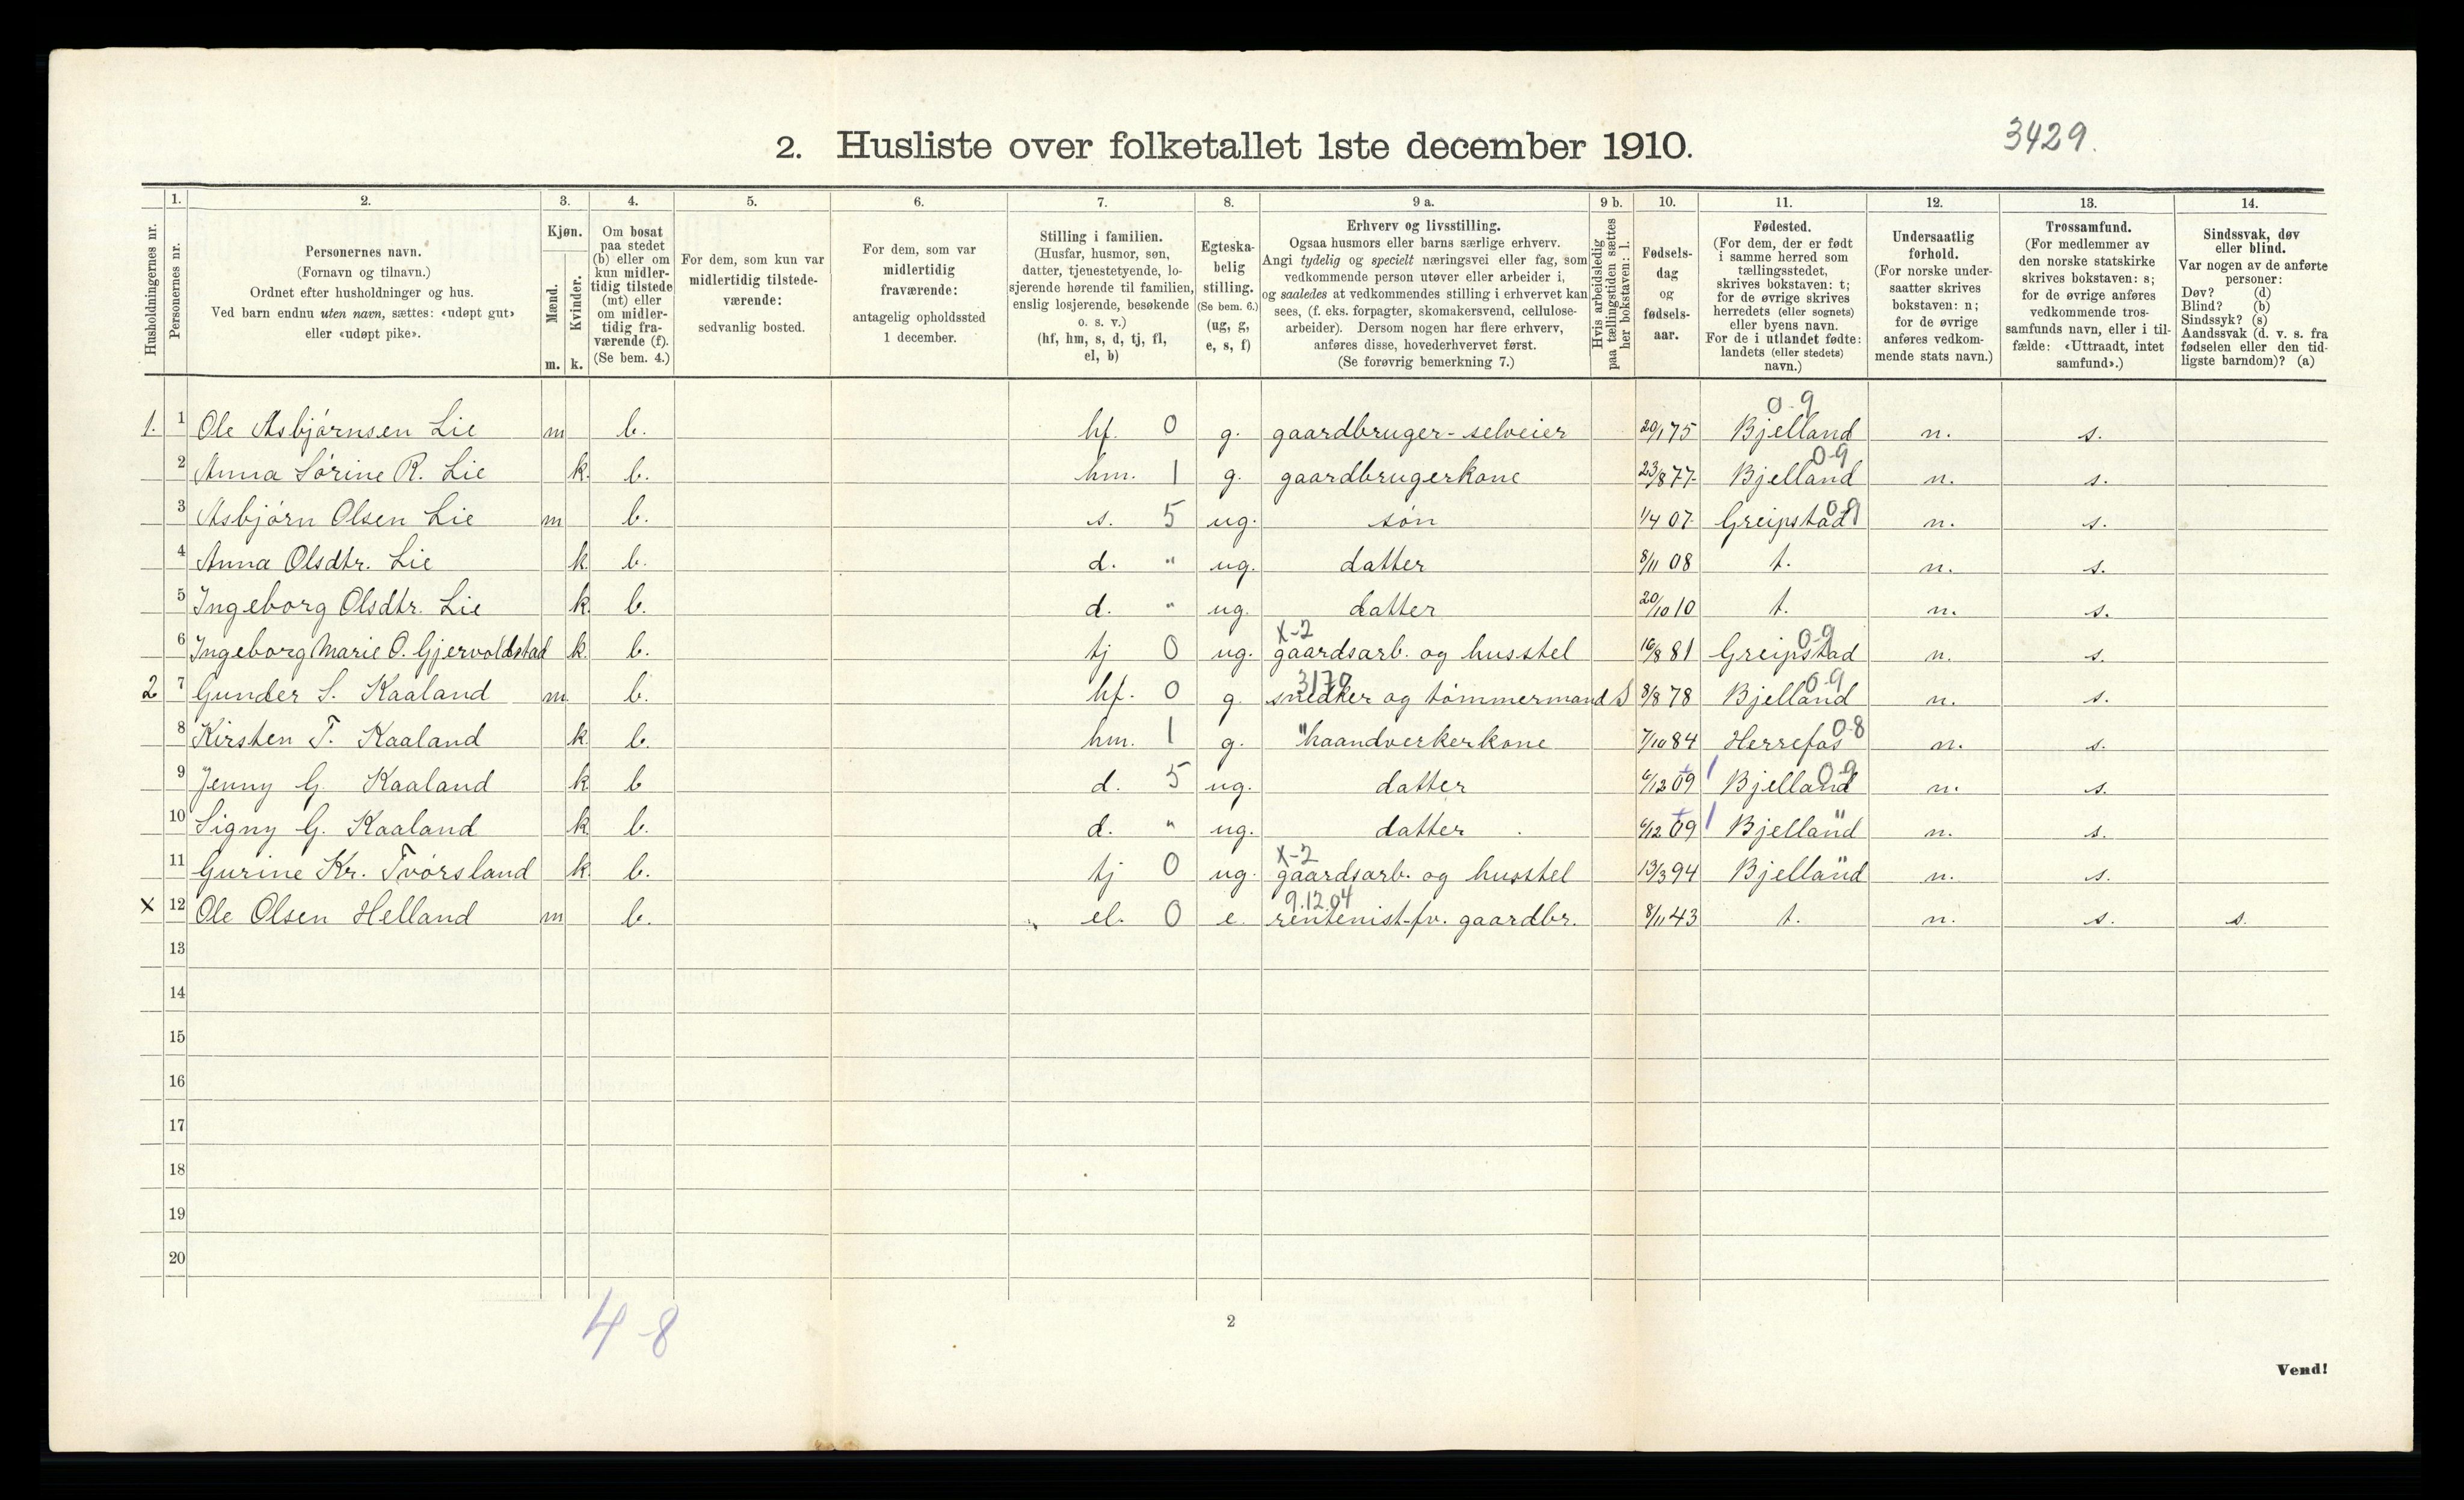 2. Husliste over folketallet 1ste december 1910.
3429.
1. 2. 3. 4. 5. 6. 7. 8. 9 a. 9 b. 10. 11. 12. 13. 14.
Husholdningernes nr.
Personernes nr.
Personernes navn.
(Fornavn og tilnavn.)
Ordnet efter husholdninger og hus.
Ved barn endnu uten navn, sættes: «udøpt gut»
eller «udøpt pike».
Kjøn.
Mænd.
Kvinder.
m. k.
Om bosat
paa stedet
(b) eller om
kun midler-
tidig tilstede
(mt) eller
om midler-
tidig fra-
værende (f).
(Se bem. 4.)
For dem, som kun var
midlertidig tilstede-
værende:
sedvanlig bosted.
For dem, som var
midlertidig
fraværende:
antagelig opholdssted
1 december.
Stilling i familien.
(Husfar, husmor, søn,
datter, tjenestetyende, lo-
sjerende hørende til familien,
enslig losjerende, besøkende
o. s. v.)
(hf, hm, s, d, tj, fl,
el, b)
Egteska-
belig
stilling.
(Se bem. 6.)
(ug, g,
e, s, f)
Erhverv og livsstilling.
Ogsaa husmors eller barns særlige erhverv.
Angi tydelig og specielt næringsvei eller fag, som
vedkommende person utøver eller arbeider i,
og saaledes at vedkommendes stilling i erhvervet kan
sees, (f. eks. forpagter, skomakersvend, cellulose-
arbeider). Dersom nogen har flere erhverv,
anføres disse, hovederhvervet først.
(Se forøvrig bemerkning 7.)
Hvis arbeidsledig
paa tællingstiden sættes
her bokstaven: l.
Fødsels-
dag
og
fødsels-
aar.
Fødested.
(For dem, der er født
i samme herred som
tællingsstedet,
skrives bokstaven: t;
for de øvrige skrives
herredets (eller sognets)
eller byens navn.
For de i utlandet fødte:
landets (eller stedets)
navn.)
Undersaatlig
forhold.
(For norske under-
saatter skrives
bokstaven: n;
for de øvrige
anføres vedkom-
mende stats navn.)
Trossamfund.
(For medlemmer av
den norske statskirke
skrives bokstaven: s;
for de øvrige anføres
vedkommende tros-
samfunds navn, eller i til-
fælde: «Uttraadt, intet
samfund».)
Sindssvak, døv
eller blind.
Var nogen av de anførte
personer:
Døv? (d)
Blind? (b)
Sindssyk? (s)
Aandssvak (d. v. s. fra
fødselen eller den tid-
ligste barndom)? (a)
0-9
1. 1 Ole Asbjørnsen Lie m b. hf. 0 g. gaardbruger-selveier 20/1 75 Bjelland n. s.
0-9
2 Anna Sørine R. Lie k. b. hm. 1 g. gaardbrugerkone 23/8 77 Bjelland n. s.
0-9
3 Asbjørn Olsen Lie m b. s. 5 ug. søn 1/4 07 Greipstad n. s.
4 Anna Olsdtr. Lie k. b. d. " ug. datter 8/11 08 t. n. s.
5 Ingeborg Olsdtr. Lie k. b. d. " ug. datter 20/10 10 t. n. s.
X-2 0-9
6 Ingeborg Marie O. Gjervoldstad k. b. tj 0 ug. gaardsarb. og husstel 16/8 81 Greipstad n. s.
3170 0-9
2 7 Gunder S. Kaaland m. b. hf. 0 g. snedker og tømmermand S 8/8 78 Bjelland n. s.
0-8
8 Kirsten T. Kaaland k. b. hm. 1 g. "haandverkerkone 7/10 84 Herrefos n. s.
0-9
9 Jenny G. Kaaland k. b d. 5 ug. datter 6/12 09 Bjelland n. s.
10 Signy G. Kaaland k. b. d. " ug. datter 6/12 09 Bjelland " n. s.
X-2
11 Gurine Kr. Tvørsland k. b. tj 0 ug. gaardsarb. og husstel 13/3 94 Bjelland " n. s.
9.12.04
X 12 Ole Olsen Helland m b. el. 0 e. rentenist-fv. gaardbr. 8/11 43 t. n. s. s.
13
14
15
16
17
18
19
20
4-8
2
Vend!